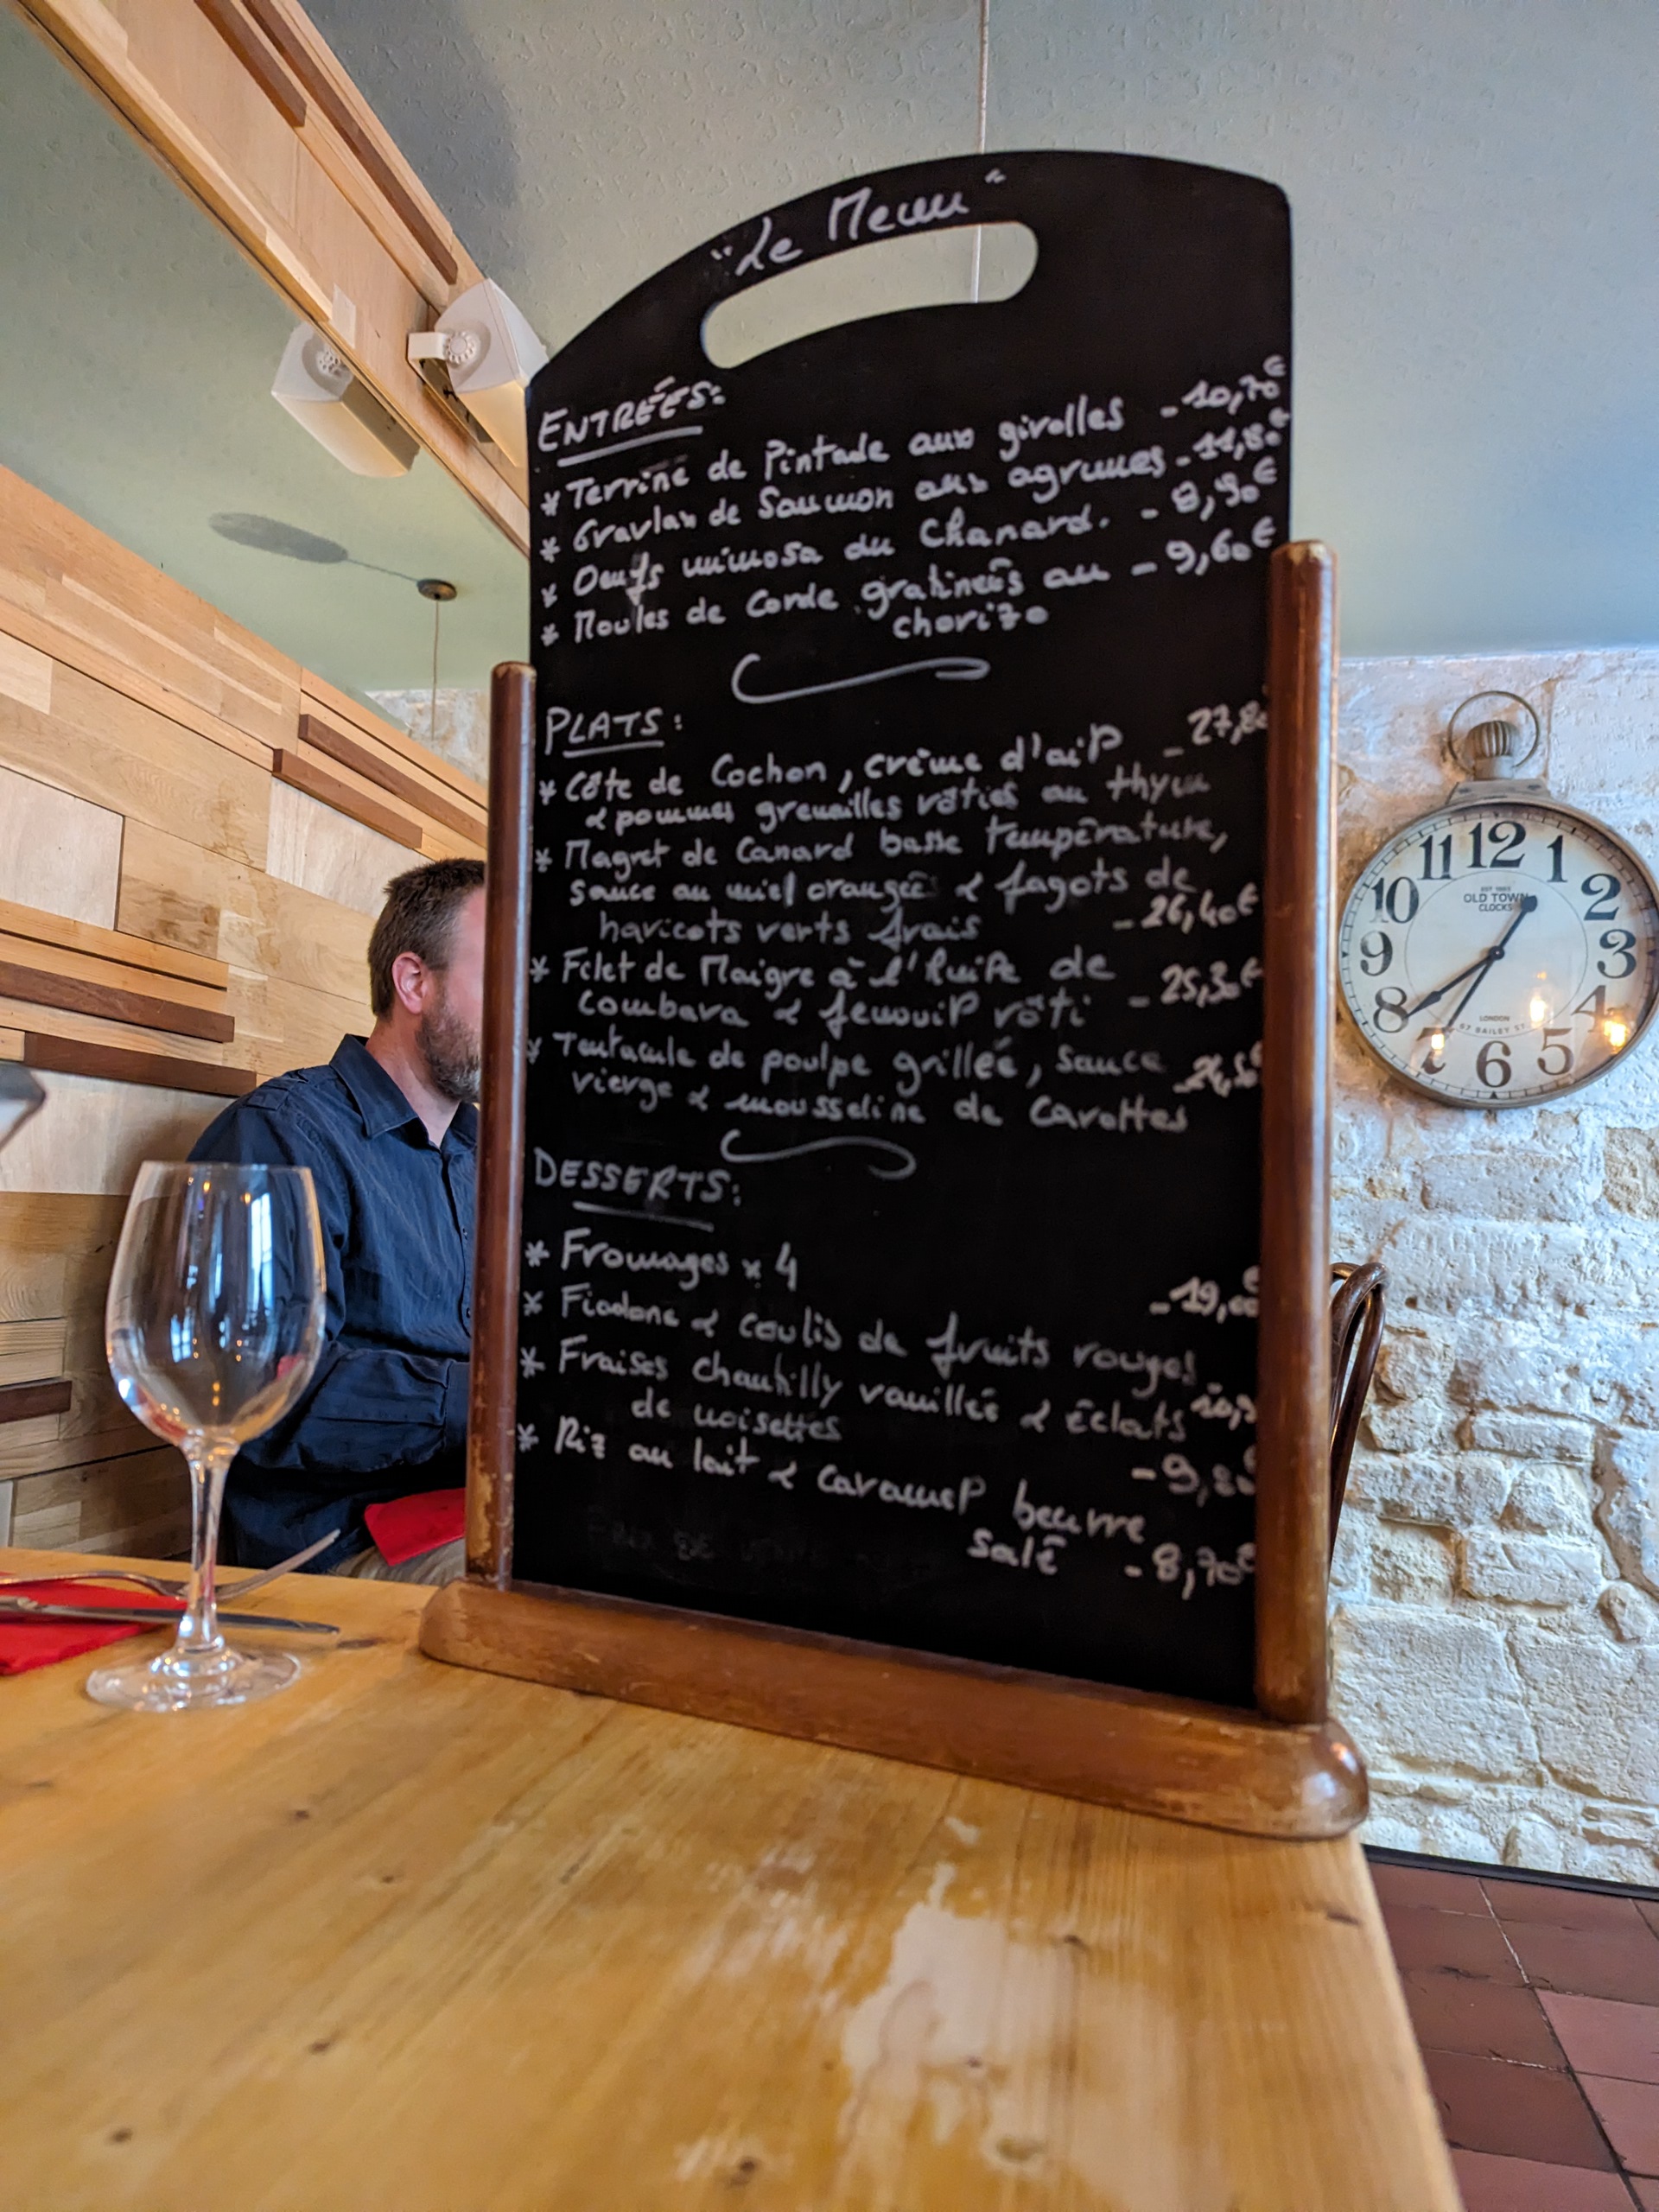 "Le Menu"
ENTRÉES:
* Terrine de Pintade aux girolles - 10,70€
* Gravlax de Saumon aux agrumes - 11,80€
* Oeufs mimosa du Chanard. - 8,90€
* Moules de Corde gratineés au - 9,60€
chorizo
PLATS:
* Côte de Cochon, crème d'ail - 27,80
& pommes grenailles rôties au thym
* Magret de Canard basse température,
sauce au miel orangée & fagots de
haricots verts frais - 26,40€
* Filet de Maigre à l'huile de
combava & fenouil rôti - 25,30€
* Tentacule de poulpe grillée, sauce
vierge & mousseline de carottes
DESSERTS:
* Fromages x 4
- 19,00€
* Fiadone & coulis de fruits rouges
* Fraises chantilly vanillée & éclats
de noisettes
- 9,80€
* Riz au lait & caramel beurre
salé - 8,70€
12 1 2 3 4 5 6 7 8 9 10 11
EST 1863
OLD TOWN
CLOCKS
LONDON
67 BAILEY ST.